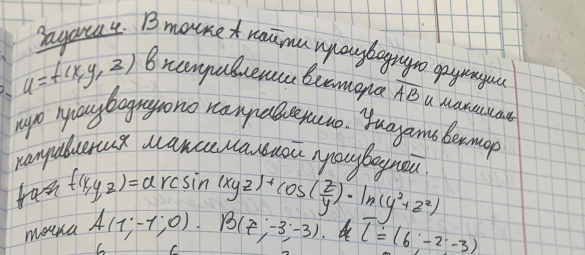 Задача 4. В точке A найти производную функции
u = f(x,y,z) в направлении вектора AB и максималь
ную производную по направлению. Указать вектор
направления максимальной производной.
f(x,y,z) = arcsin(xyz) + cos(z/y) · ln(y²+z²)
точка A(1;-1;0). B(7;-3;-3). l = (6;-2;-3)